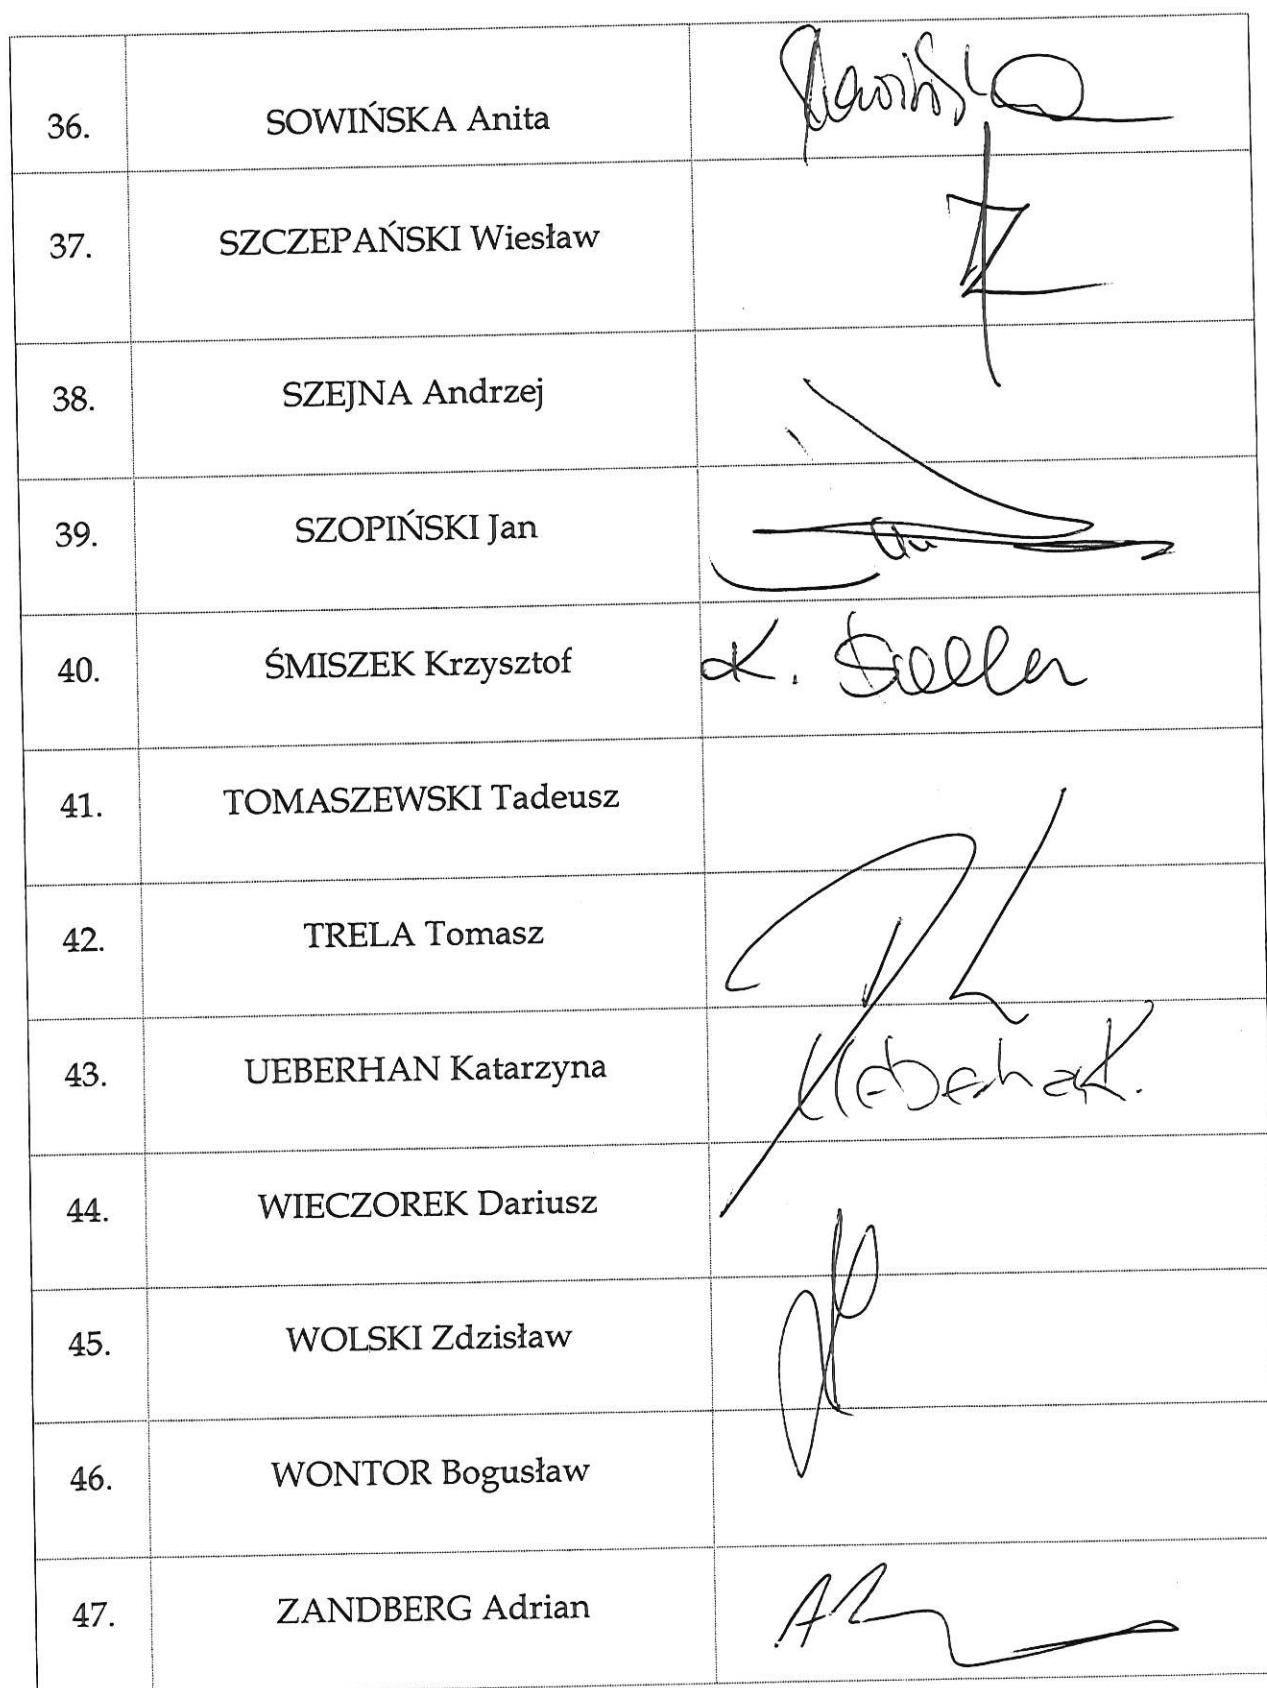 36. SOWIŃSKA Anita
37. SZCZEPAŃSKI Wiesław
38. SZEJNA Andrzej
39. SZOPIŃSKI Jan
40. ŚMISZEK Krzysztof K.
41. TOMASZEWSKI Tadeusz
42. TRELA Tomasz
43. UEBERHAN Katarzyna
44. WIECZOREK Dariusz
45. WOLSKI Zdzisław
46. WONTOR Bogusław
47. ZANDBERG Adrian